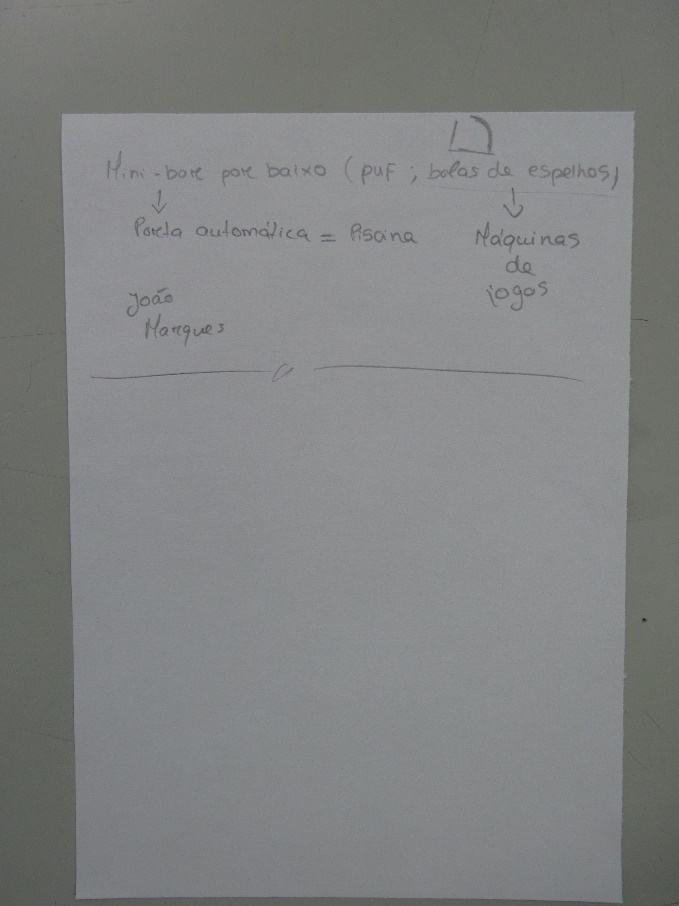 Mini-bar por baixo (puf ; bolas de espelhos)
↓ ↓
Porta automática = Piscina Máquinas
de
jogos
João
Marques